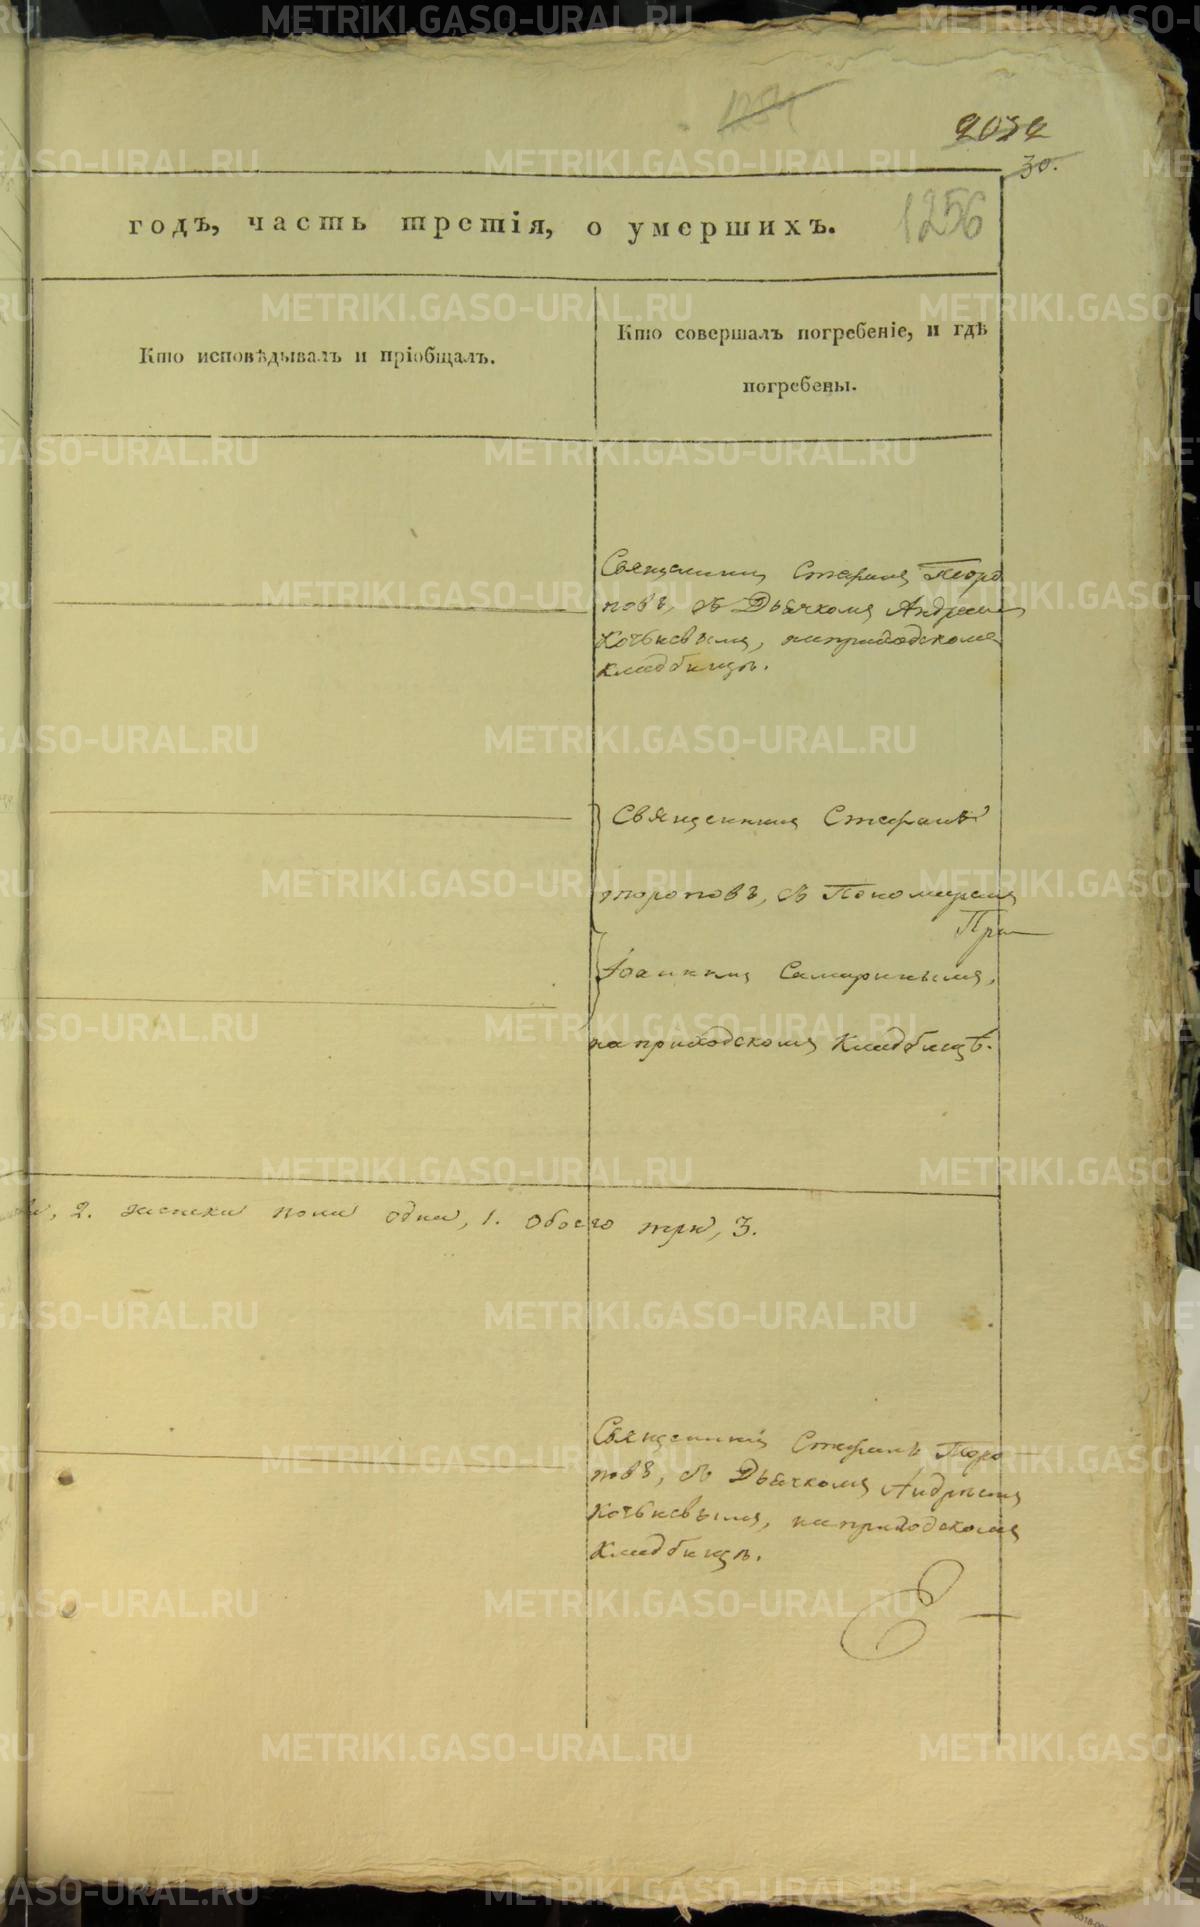 1254
2032
30.
1256
годъ, часть третія, о умершихъ.
Кто исповѣдывалъ и пріобщалъ.
Кто совершалъ погребеніе, и гдѣ
погребены.
Священникъ Стефанъ Торо
повъ, съ Дьячкомъ Андреемъ
на приходскомъ
кладбищѣ.
Священникъ Стефанъ
тороповъ, съ Пономаремъ
Іоанномъ Самаринымъ,
на приходскомъ Кладбищѣ.
2. женска пола одна, 1. обоего три, 3.
Священникъ Стефанъ Торо
повъ, съ Дьячкомъ Андреемъ
на приходскомъ
Кладбищѣ.
METRIKI.GASO-URAL.RU